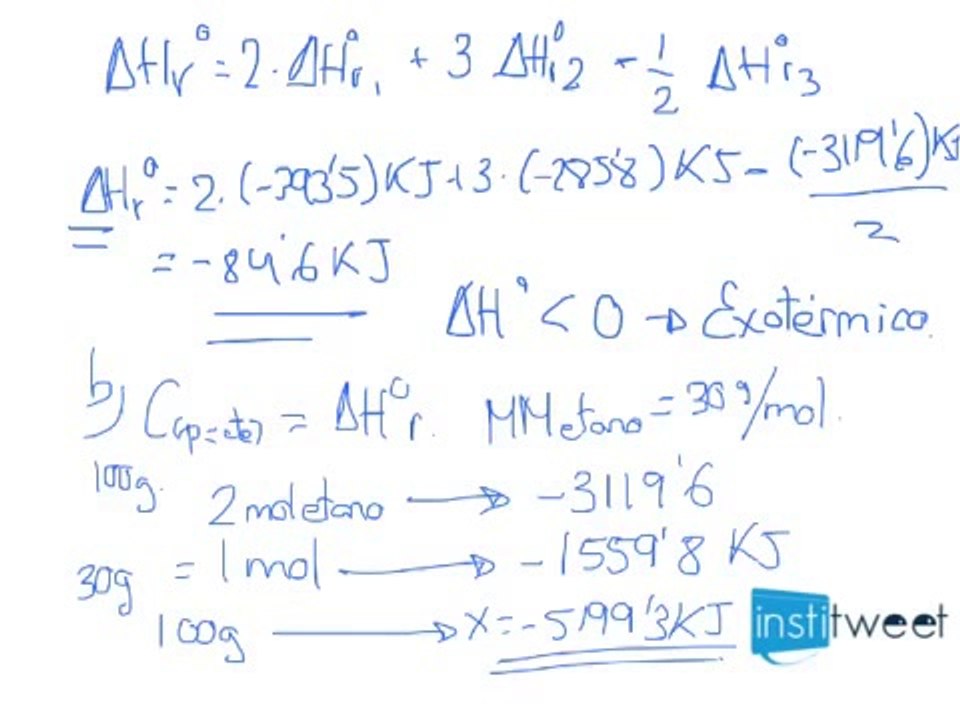 ΔHr° = 2·ΔHr°1 + 3 ΔHr°2 - 1/2 ΔH°r3
ΔHr° = 2·(-393'5)KJ + 3·(-285'8)KJ - (-3119'6)KJ/2
= -84'6 KJ
ΔH° < 0 → Exotérmico.
b) Q(p=cte) = ΔH°r. MMetano = 30 g/mol.
100g. 2 mol etano → -3119'6
30g = 1 mol → -1559'8 KJ
100g → x = -5199'3KJ
institweet